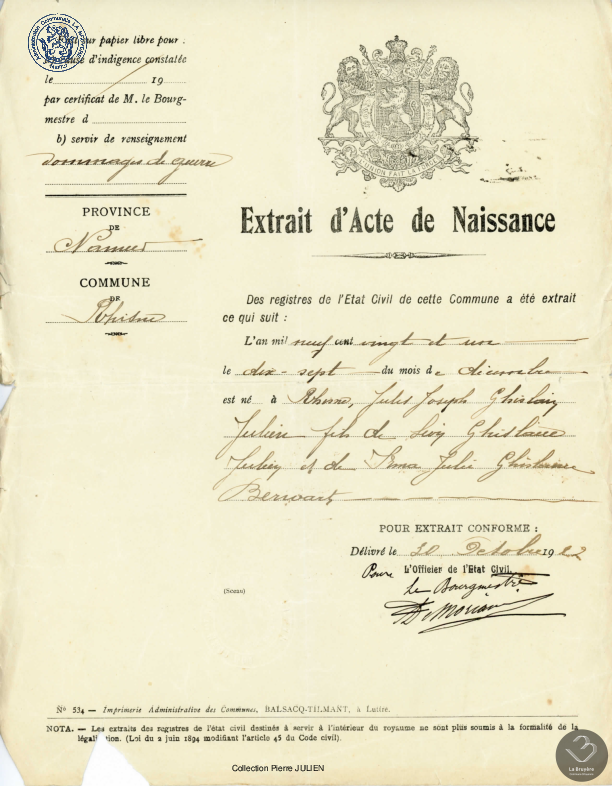 sur papier libre pour :
cause d'indigence constatée
le 19
par certificat de M. le Bourg-
mestre d
b) servir de renseignement
dommages de guerre
PROVINCE
DE
Namur
COMMUNE
DE
Rhisne
L'UNION FAIT LA FORCE
Extrait d'Acte de Naissance
Des registres de l'Etat Civil de cette Commune a été extrait
ce qui suit :
L'an mil neuf cent vingt et un
le dix-sept du mois de décembre
est né à Rhisne, Jules Joseph Ghislain
Julien fils de Ghislain
Julien et de Irma Julie Ghislaine
POUR EXTRAIT CONFORME :
Délivré le 20 Octobre 1922
Pour L'Officier de l'Etat Civil,
Le Bourgmestre
(Sceau)
N° 534 — Imprimerie Administrative des Communes, BALSACQ-TILMANT, à Luttre.
NOTA. — Les extraits des registres de l'état civil destinés à servir à l'intérieur du royaume ne sont plus soumis à la formalité de la
légalisation. (Loi du 2 juin 1894 modifiant l'article 45 du Code civil).
La Bruyère
Collection Pierre JULIEN